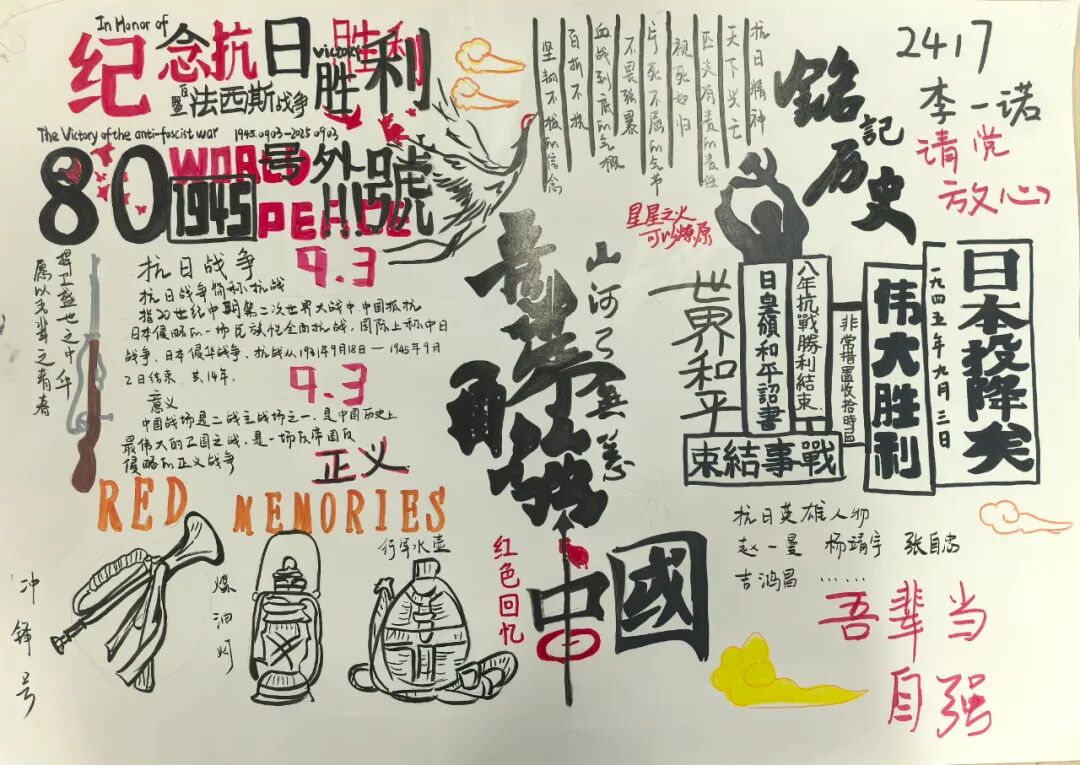 In Honor of
纪念抗日胜利
victory
胜利
暨反法西斯战争
The Victory of the anti-fascist war 1945.0903-2025.0903
80
WORLD
PEACE
1945
号外
號
9.3
抗日战争
抗日战争简称抗战
指20世纪中期第二次世界大战中,中国抵抗
日本侵略的一场民族性全面抗战,国际上称中日
战争、日本侵华战争,抗战从1931年9月18日—1945年9月
2日结束,共14年.
9.3
意义
中国战场是二战主战场之一,是中国历史上
最伟大的卫国之战,是一场反帝国反
侵略的正义战争
正义
捍卫盛世之中华
厉以吾辈之青春
RED MEMORIES
冲锋号
煤油灯
行军水壶
红色回忆
抗日精神
天下兴亡
匹夫有责的责任
视死如归
宁死不屈的气节
不畏强暴
血战到底的气概
百折不挠
坚韧不拔的信念
銘記历史
2417
李一诺
请党
放心
星星之火
可以燎原
山河无恙
中國
世界和平
日本投降矣
一九四五年九月三日
伟大胜利
非常措置收拾時局
八年抗戰勝利結束
日皇頒和平詔書
戰事結束
抗日英雄人物
赵一曼 杨靖宇 张自忠
吉鸿昌 ……
吾辈当
自强